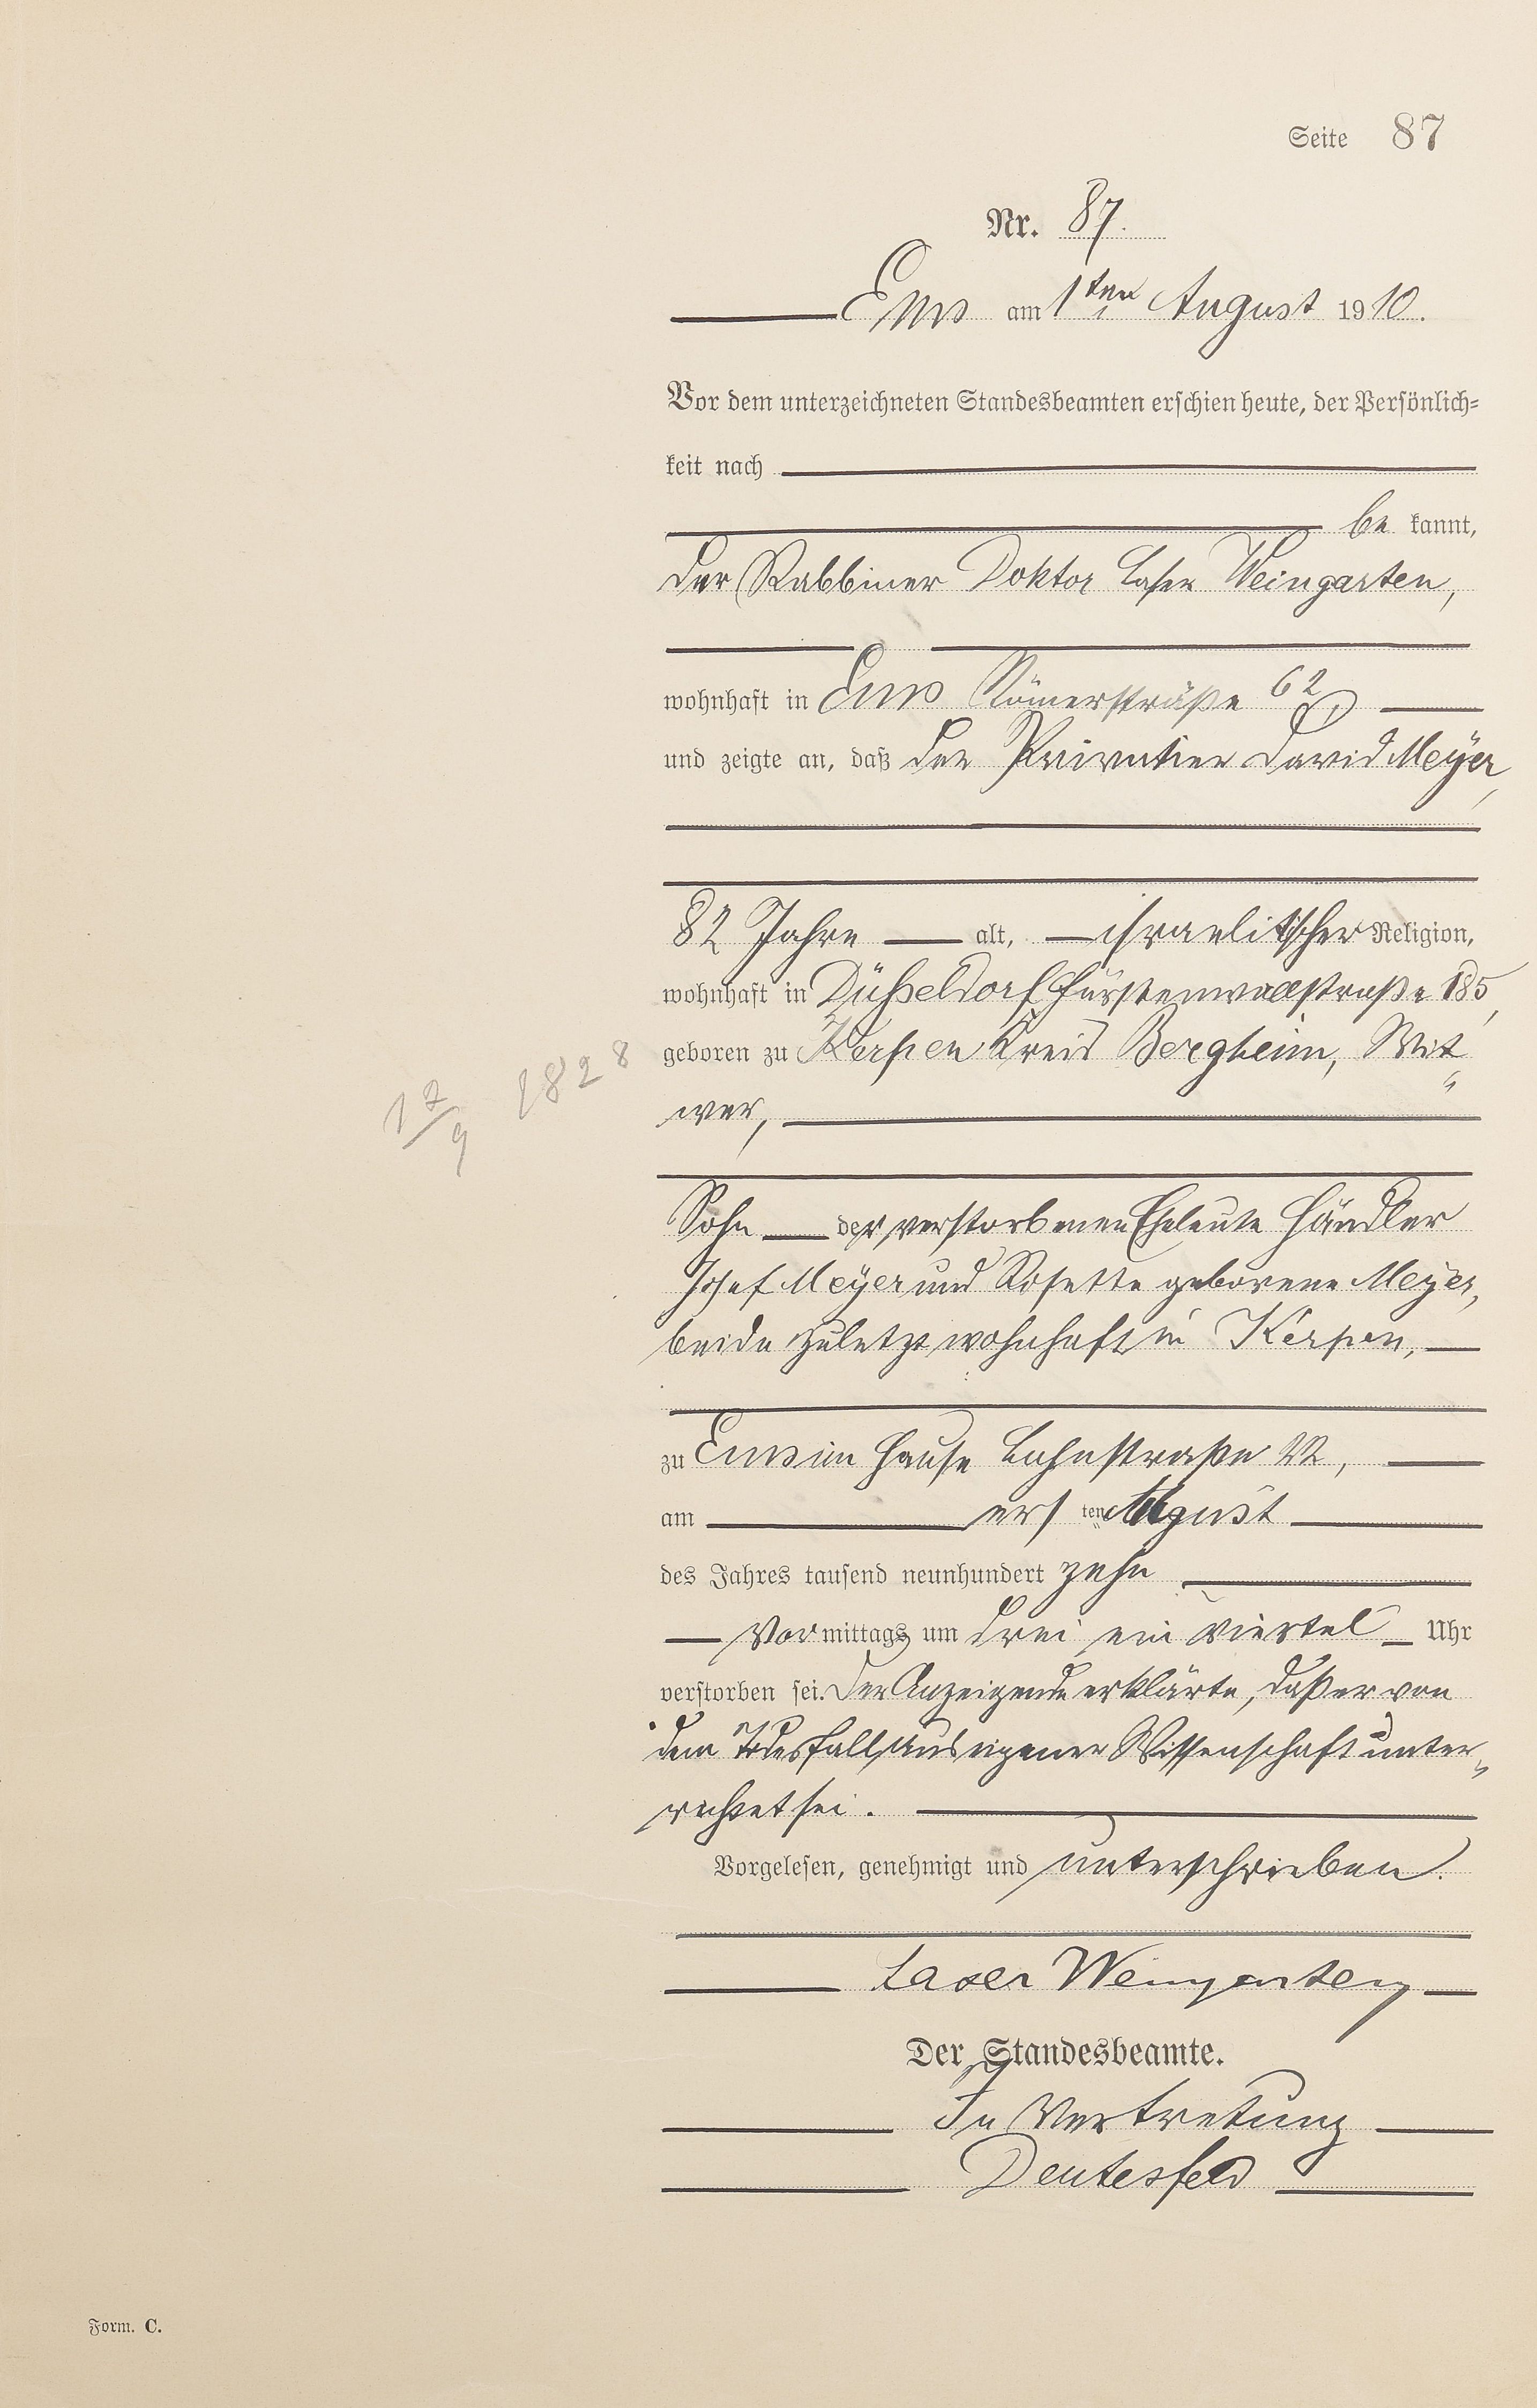 Seite 87
Nr. 87.
Ems am 1ten August 1910.
Vor dem unterzeichneten Standesbeamten erschien heute, der Persönlich=
keit nach
be kannt,
der Rabbiner Doktor Laser Weingarten,
wohnhaft in Ems Römerstraße 62
und zeigte an, daß der Privatier David Meyer,
82 Jahre alt, israelitischer Religion,
wohnhaft in Düsseldorf Fürstenwallstraße 185,
geboren zu Kerpen Kreis Bergheim, Wit„
17/9 1828
wer,
Sohn der verstorbenen Eheleute Händler
Josef Meyer und Rosette geborene Meyer,
beide zuletzt wohnhaft in Kerpen,
zu Ems im Hause Lahnstraße
am ersten August
des Jahres tausend neunhundert zehn
Vormittags um drei ein viertel Uhr
verstorben sei. Der Anzeigende erklärte, daß er von
dem Todesfall aus eigener Wissenschaft unter„
richtet sei.
Vorgelesen, genehmigt und unterschrieben.
Laser Weingarten
Der Standesbeamte.
In Vertretung
Deutesfeld
Form. C.